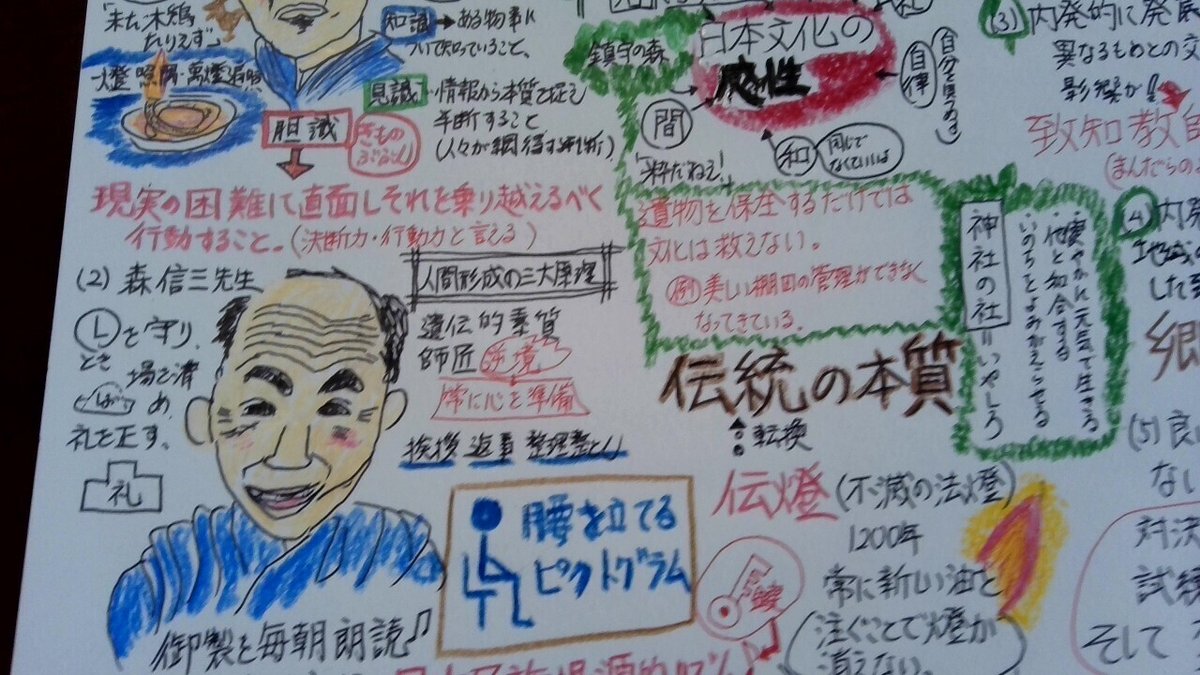 「未だ木鶏
たりえず」
一燈照隅・萬燈遍照
知識→ある物事に
ついて知っていること、
見識・情報から本質を捉え
判断すること
胆識
きもの
現実の困難に直面しそれを乗り越えるべく
行動すること。(決断力・行動力と言える)
(2) 森信三先生
とき を守り、
場 ば を清
め、
礼を正す。
礼
人間形成の三大原理
遺伝的素質
師匠 逆境
常に心を準備
挨拶 返事 整理整とん
腰を立てる
ピクトグラム
御製を毎朝朗読♫
鎮守の森
日本文化の
感性
自律
間
「粋だねえ!」
和
同じで
なくていい
遺物を保全するだけでは
文化は救えない。
例 美しい棚田の管理ができなく
なってきている。
神社の社=いやしろ
健やかに元気で生きる
他と和合する
いのちをよみがえらせる
伝統の本質
転換
伝燈(不滅の法燈)
1200年
常に新しい油を
注ぐことで燈が
消えない。
鍵
(3) 内発的に発展
異なるものとの交
影響が!
致知教育
(まんだらの
(4) 内発
地域の
した
郷
(5) 良い
ない
対決
試練
そして